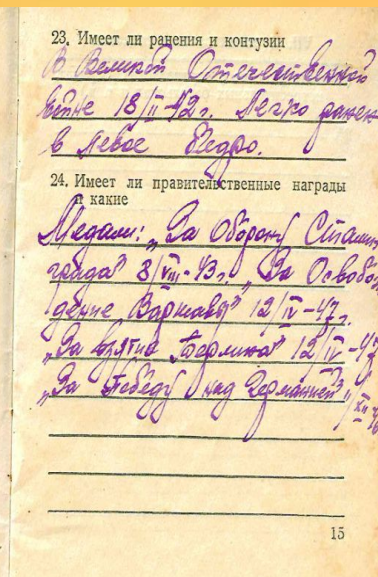 23. Имеет ли ранения и контузии
В Великой Отечественной
войне 18/II-42 г. Легко ранен
в левое бедро.
24. Имеет ли правительственные награды
и какие
Медали: „За Оборону Сталин
града" 8/VIII-43 г. „За Освобож
дение Варшавы" 12/IV-47 г.
„За взятие Берлина" 12/IV-47
„За Победу над Германией"
15